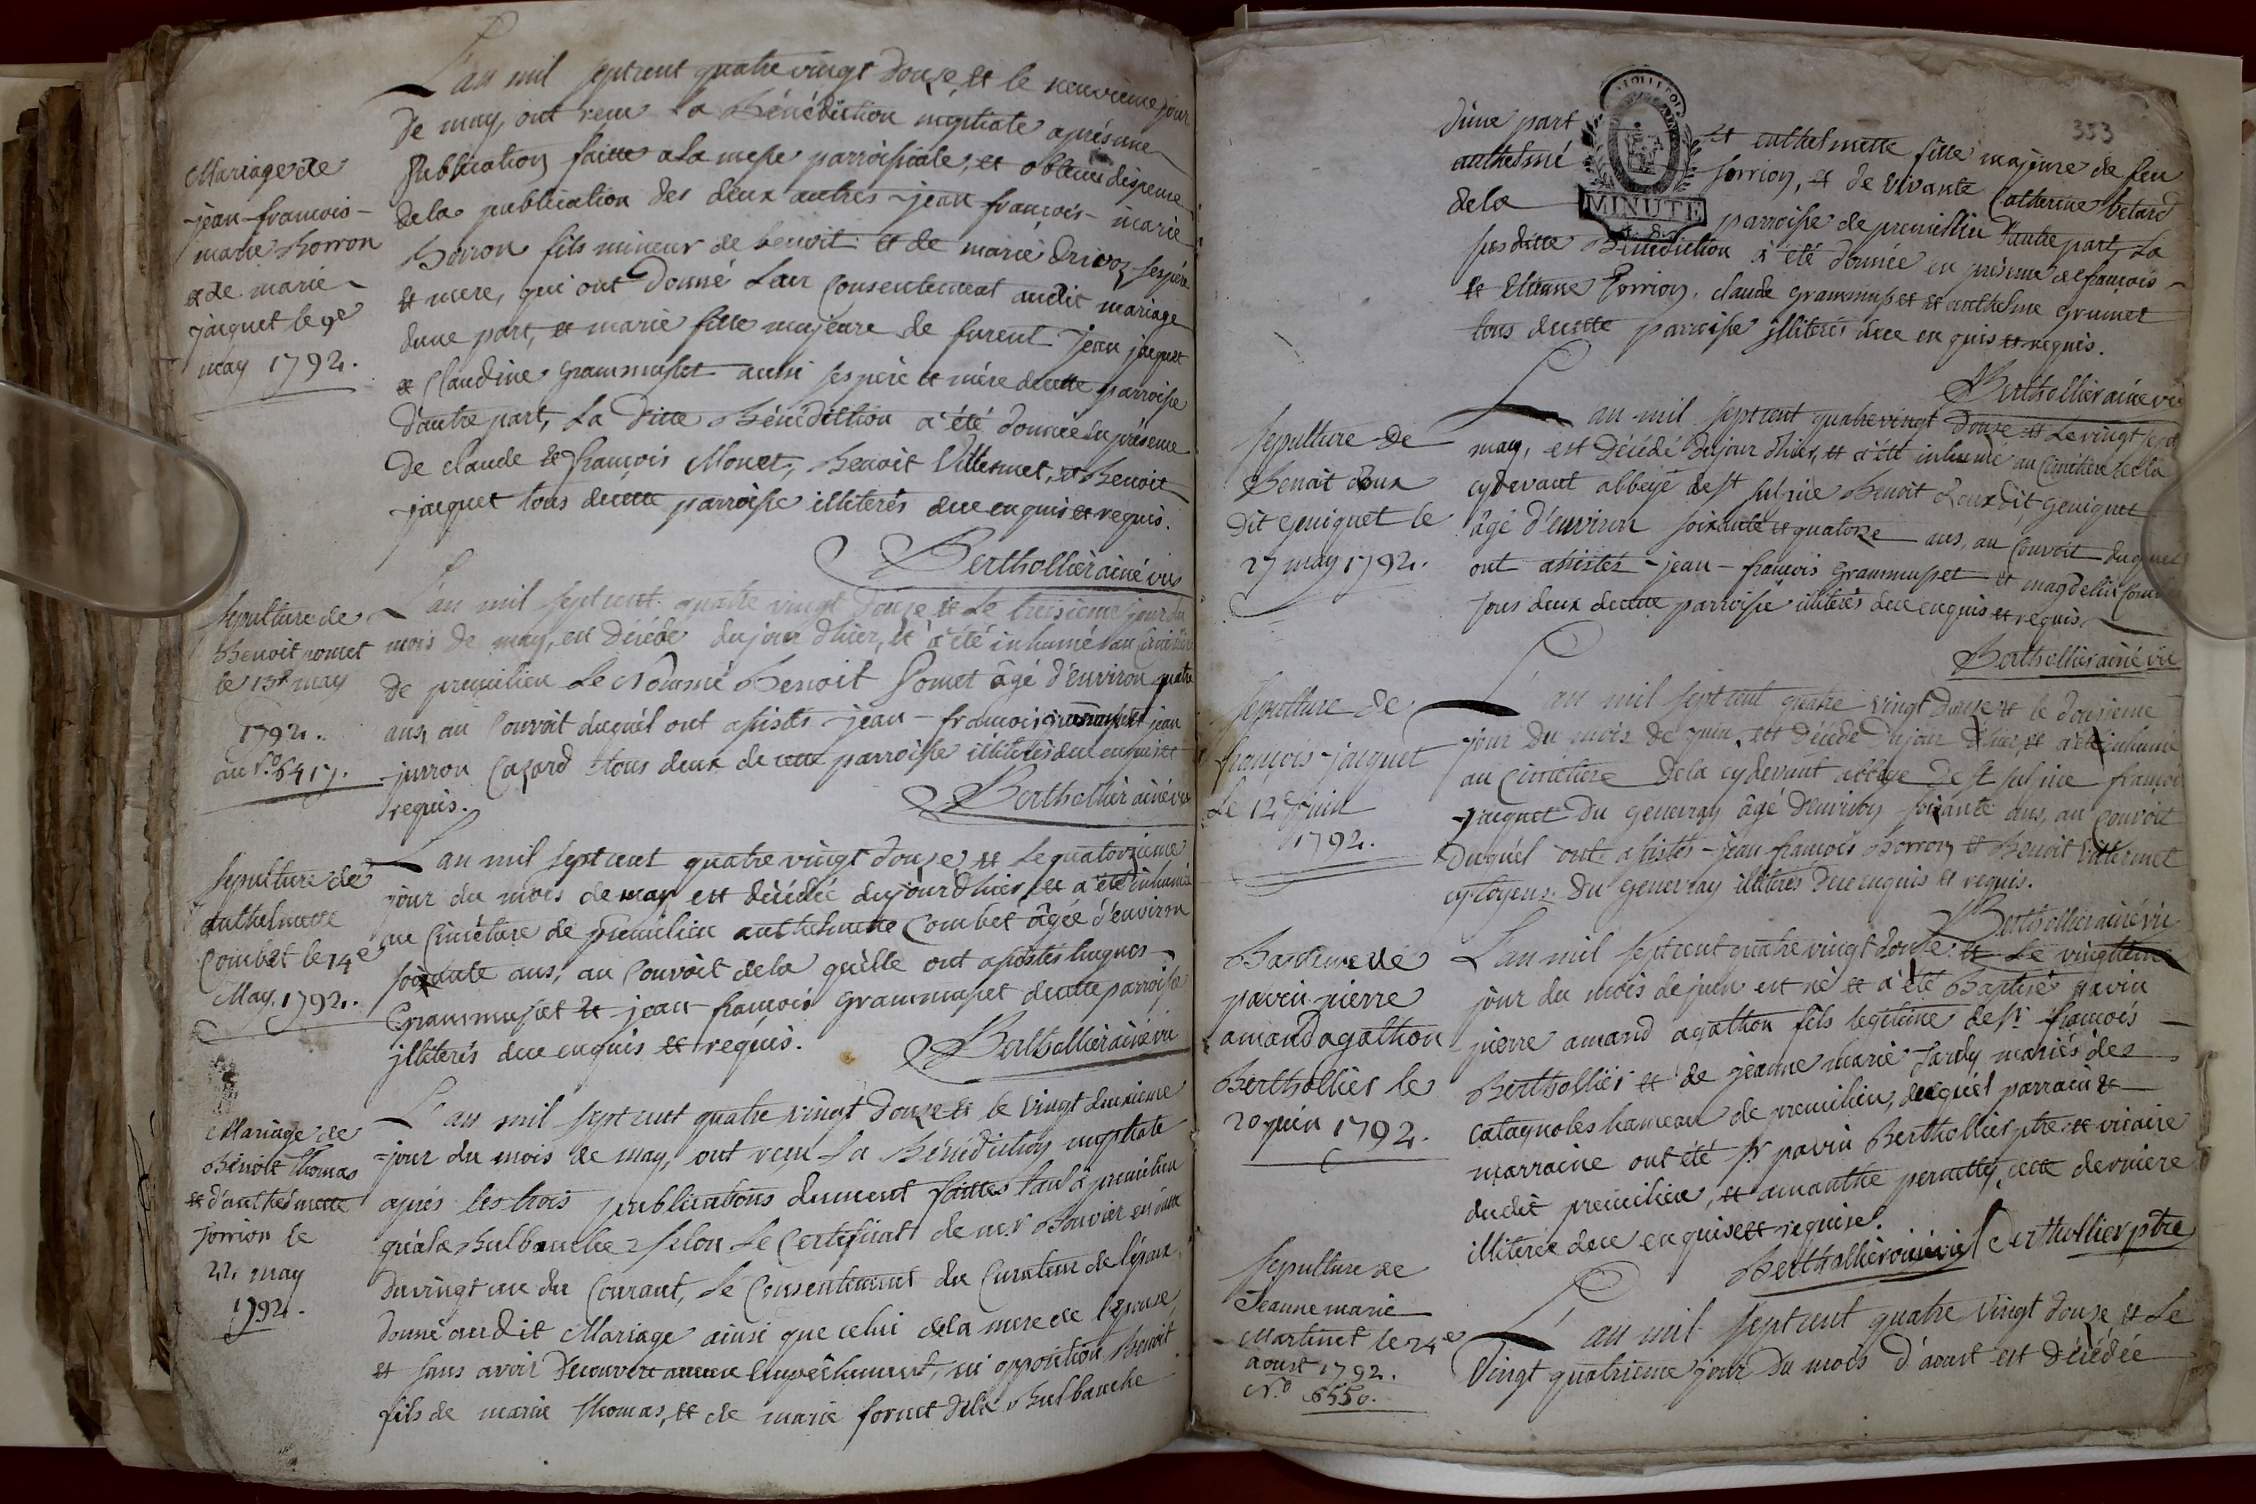 L'an mil sept cent quatre vingt douze, et le neuvieme jour
de may, ont reçu la Bénédiction nuptiale aprés une
Publication faitte a la messe parroissiale, et obtenu dispense
de la publication des deux autres jean françois marie
Borron fils mineur de benoit et de marie drivoz ses père
et mere, qui ont donné leur Consentement audit mariage
dune part, et marie fille majeure de furent Jean jacquet
et Claudine Grammusset aussi ses père et mère de cette parroisse
d'autre part, La ditte Bénédiction a été donnée en présence
de claude et françois Monet, Benoit Villermet, et Benoit
jacquet tous de cette parroisse illiterés de ce enquis et requis.
Berthollier ainé vic
Mariage de
jean-francois-
marie Borron
et de marie
jacquet le 9e
may 1792.
L'an mil sept cent quatre vingt douze et le treisieme jour du
mois de may, est décédé dujour d'hier, et a été inhumé au Cimetière
de premilieu le Nommé Benoit Pomet âgé d'environ quatre
ans, au Convoit duquel ont assistés jean-francois grammusset jean
Cazard tous deux de cette parroisse illiterés de ce enquis et
requis.
Berthollier ainé vic
Sepulture de
Benoit pomet
le 13e may
1792.
au N.o 6417.
L'an mil sept cent quatre vingt douze et le quatorzieme
jour du mois de may est décédée dujourd'hier et a été inhumée
au Cimétière de premilieu anthelmette Combet âgée d'environ
soixante ans, au Convoit de la quelle ont assistés hugues
Grammusset et jean françois Grammusset de cette parroisse
illiterés de ce enquis et requis.
Berthollier ainé vic
Sepulture de
anthelmette
Combet le 14e
May. 1792.
L'an mil sept cent quatre vingt douze et le vingt deuxieme
jour du mois de may, ont reçu la Bénédiction nuptiale
aprés les trois publications dument faittes tant à premilieu
qu'ala Bulbanche selon le Certificat de m.r Bouvier en date
du vingt un du Courant, le Consentement du Curateur de l'époux
donné audit Mariage ainsi que celui de la mere de l'épouse,
et sans avoir découvert aucun Empêchement, ni opposition, Benoit
fils de marin Thomas, et de marie fornet de la Bulbanche
Mariage de
Bénoit Thomas
et d'anthelmette
sorrion le
22 may
1792.
353
MINUTE
d'une part et anthelmette fille majeure de feu
anthelme sorrion, et de vivante Catherine betard
de la parroisse de premillieu d'autre part, La
susditte Bénédiction à été donnée en présence de françois
et Etienne sorrion, claude grammusset et anthelme grumet
tous de cette parroisse illiterés de ce enquis et requis.
Berthollier ainé vic
L'an mil sept cent quatre vingt douze et le vingt sept
may, est décédé dujour d'hier, et a été inhumé au Cimetière de la
cydevant abbeye de st sulpice Benoit doux dit geniquet
âgé d'environ soixante et quatorze ans, au Convoit duquel
ont assistés jean-françois Grammusset et magdelin
tous deux de cette parroisse illiterés de ce enquis et requis.
Berthollier ainé vic
Sepulture de
Benoit doux
dit geniquet le
27 may 1792.
L'an mil sept cent quatre vingt douze et le douzieme
jour du mois de juin est décédé dujour d'hier et a été inhumé
au Cimetière de la cydevant abbeye de st sulpice françois
jacquet du genevray âgé denviron soixante ans, au Convoit
duquel ont assistés jean françois Borron et Benoit Villermet
cytoyens du genevray illiterés de ce enquis et requis.
Berthollier ainé vic
Sepulture de
françois jacquet
le 12e juin
1792.
L'an mil sept cent quatre vingt douze et le vingtieme
jour du mois de juin est né et a été Baptisé pavin
pierre amand agathon fils legitime de sr. francois
Berthollier et de jeanne marie Tardy mariés des
catagnoles hameau de premilieu, duquel parrain et
marraine ont été sr pavin Berthollier ptre et vicaire
dudit premilieu, et amanthe pernetty, cette derniere
illiterée de ce enquise et requise.
Berthollier ainé vic Berthollier ptre
Bapteme de
pavin pierre
amand agathon
Berthollier le
20 juin 1792.
L'an mil sept cent quatre vingt douze et le
vingt quatrieme jour du mois d'aoust est décédée
Sepulture de
Jeanne marie
Martinet le 24e
aoust 1792.
N.o 6550.